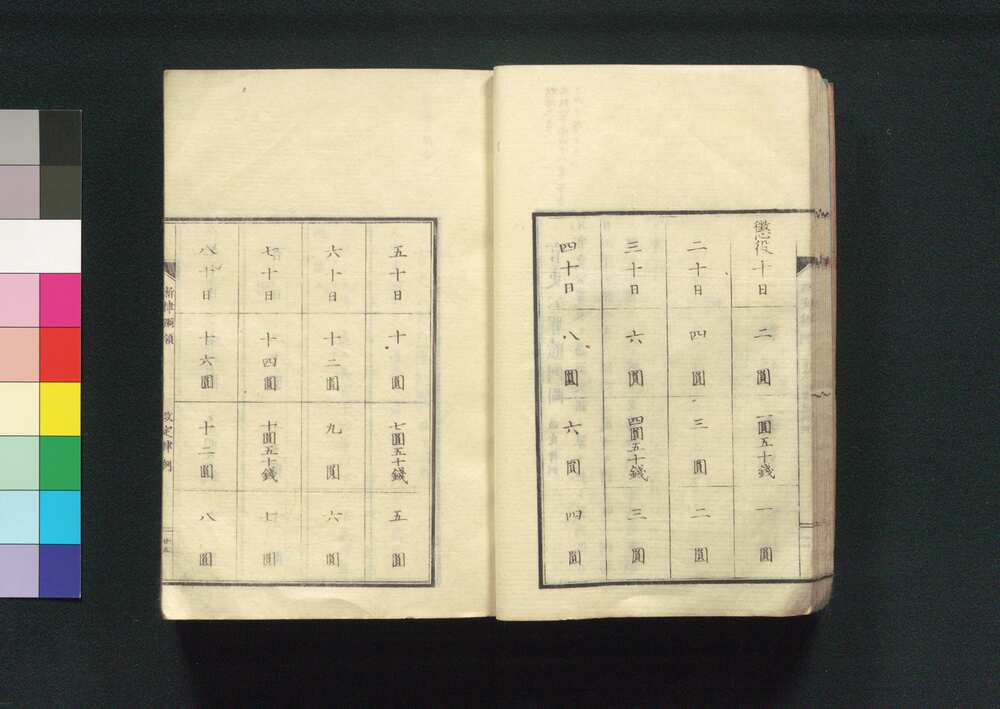 懲役十日 二圓 一圓五十錢 一圓
二十日 四圓 三圓 二圓
三十日 六圓 四圓五十錢 三圓
四十日 八圓 六圓 四圓
五十日 十圓 七圓五十錢 五圓
六十日 十二圓 九圓 六圓
七十日 十四圓 十圓五十錢 七圓
八十日 十六圓 十二圓 八圓
新律綱領 改定律例